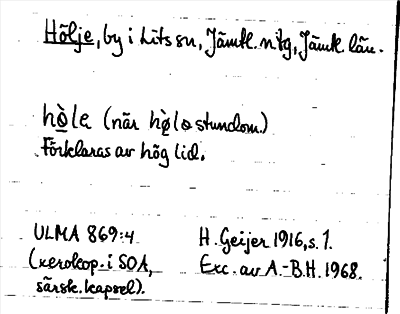 Hölje, by i Lits sn, Jämtl. ntg, Jämtl. län.
hò̱la (när hø̱̀la stundom.)
Förklaras av hög lid.
ULMA 869:4 H. Geijer 1916, s. 1.
(xerokop. i SOA, Exc. av A.-B.H. 1968.
särsk. kapsel).